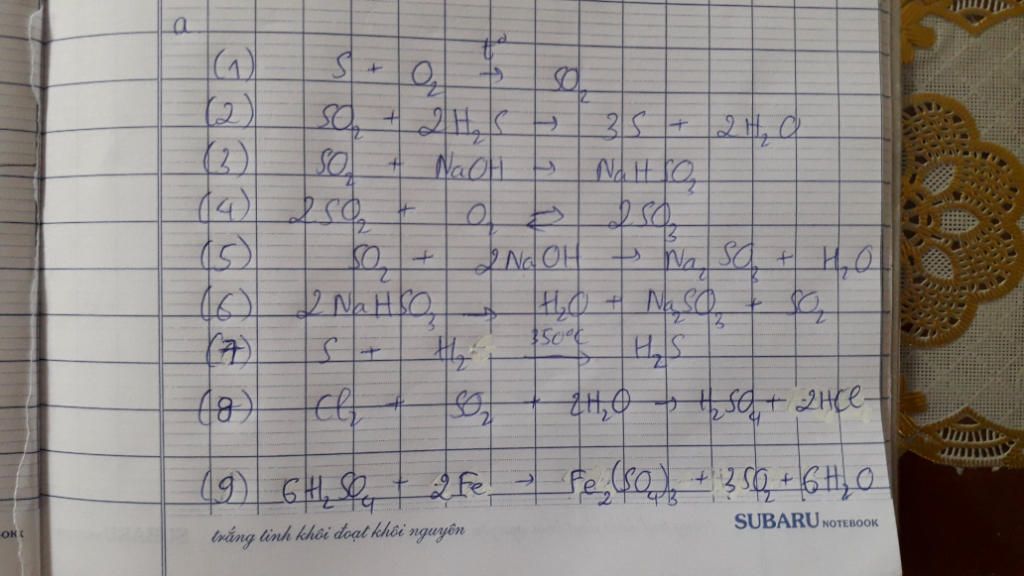 a
(1) S + O₂ →t° SO₂
(2) SO₂ + 2H₂S → 3S + 2H₂O
(3) SO₂ + NaOH → NaHSO₃
(4) 2SO₂ + O₂ ⇌ 2SO₃
(5) SO₂ + 2NaOH → Na₂SO₃ + H₂O
(6) 2NaHSO₃ → H₂O + Na₂SO₃ + SO₂
(7) S + H₂ →350°C H₂S
(8) Cl₂ + SO₂ + 2H₂O → H₂SO₄ + 2HCl
(9) 6H₂SO₄ + 2Fe → Fe₂(SO₄)₃ + 3SO₂ + 6H₂O
trắng tinh khôi đoạt khôi nguyên SUBARU NOTEBOOK